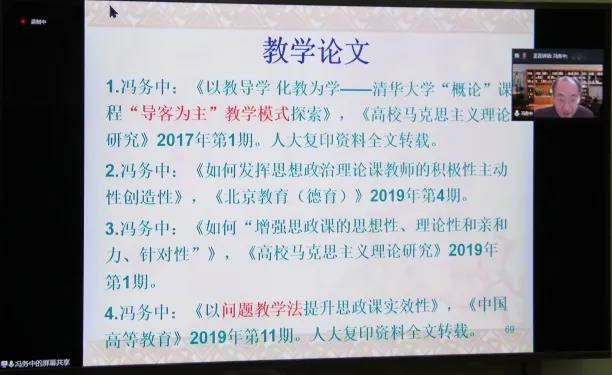 录制中
教学论文
正在讲话: 冯务中;
冯务中
1.冯务中：《以教导学 化教为学——清华大学“概论”课
程“导客为主”教学模式探索》，《高校马克思主义理论
研究》2017年第1期。人大复印资料全文转载。
2.冯务中：《如何发挥思想政治理论课教师的积极性主动
性创造性》，《北京教育（德育）》2019年第4期。
3.冯务中：《如何“增强思政课的思想性、理论性和亲和
力、针对性”》，《高校马克思主义理论研究》2019年
第1期。
4.冯务中：《以问题教学法提升思政课实效性》，《中国
高等教育》2019年第11期。人大复印资料全文转载。
69
冯务中的屏幕共享